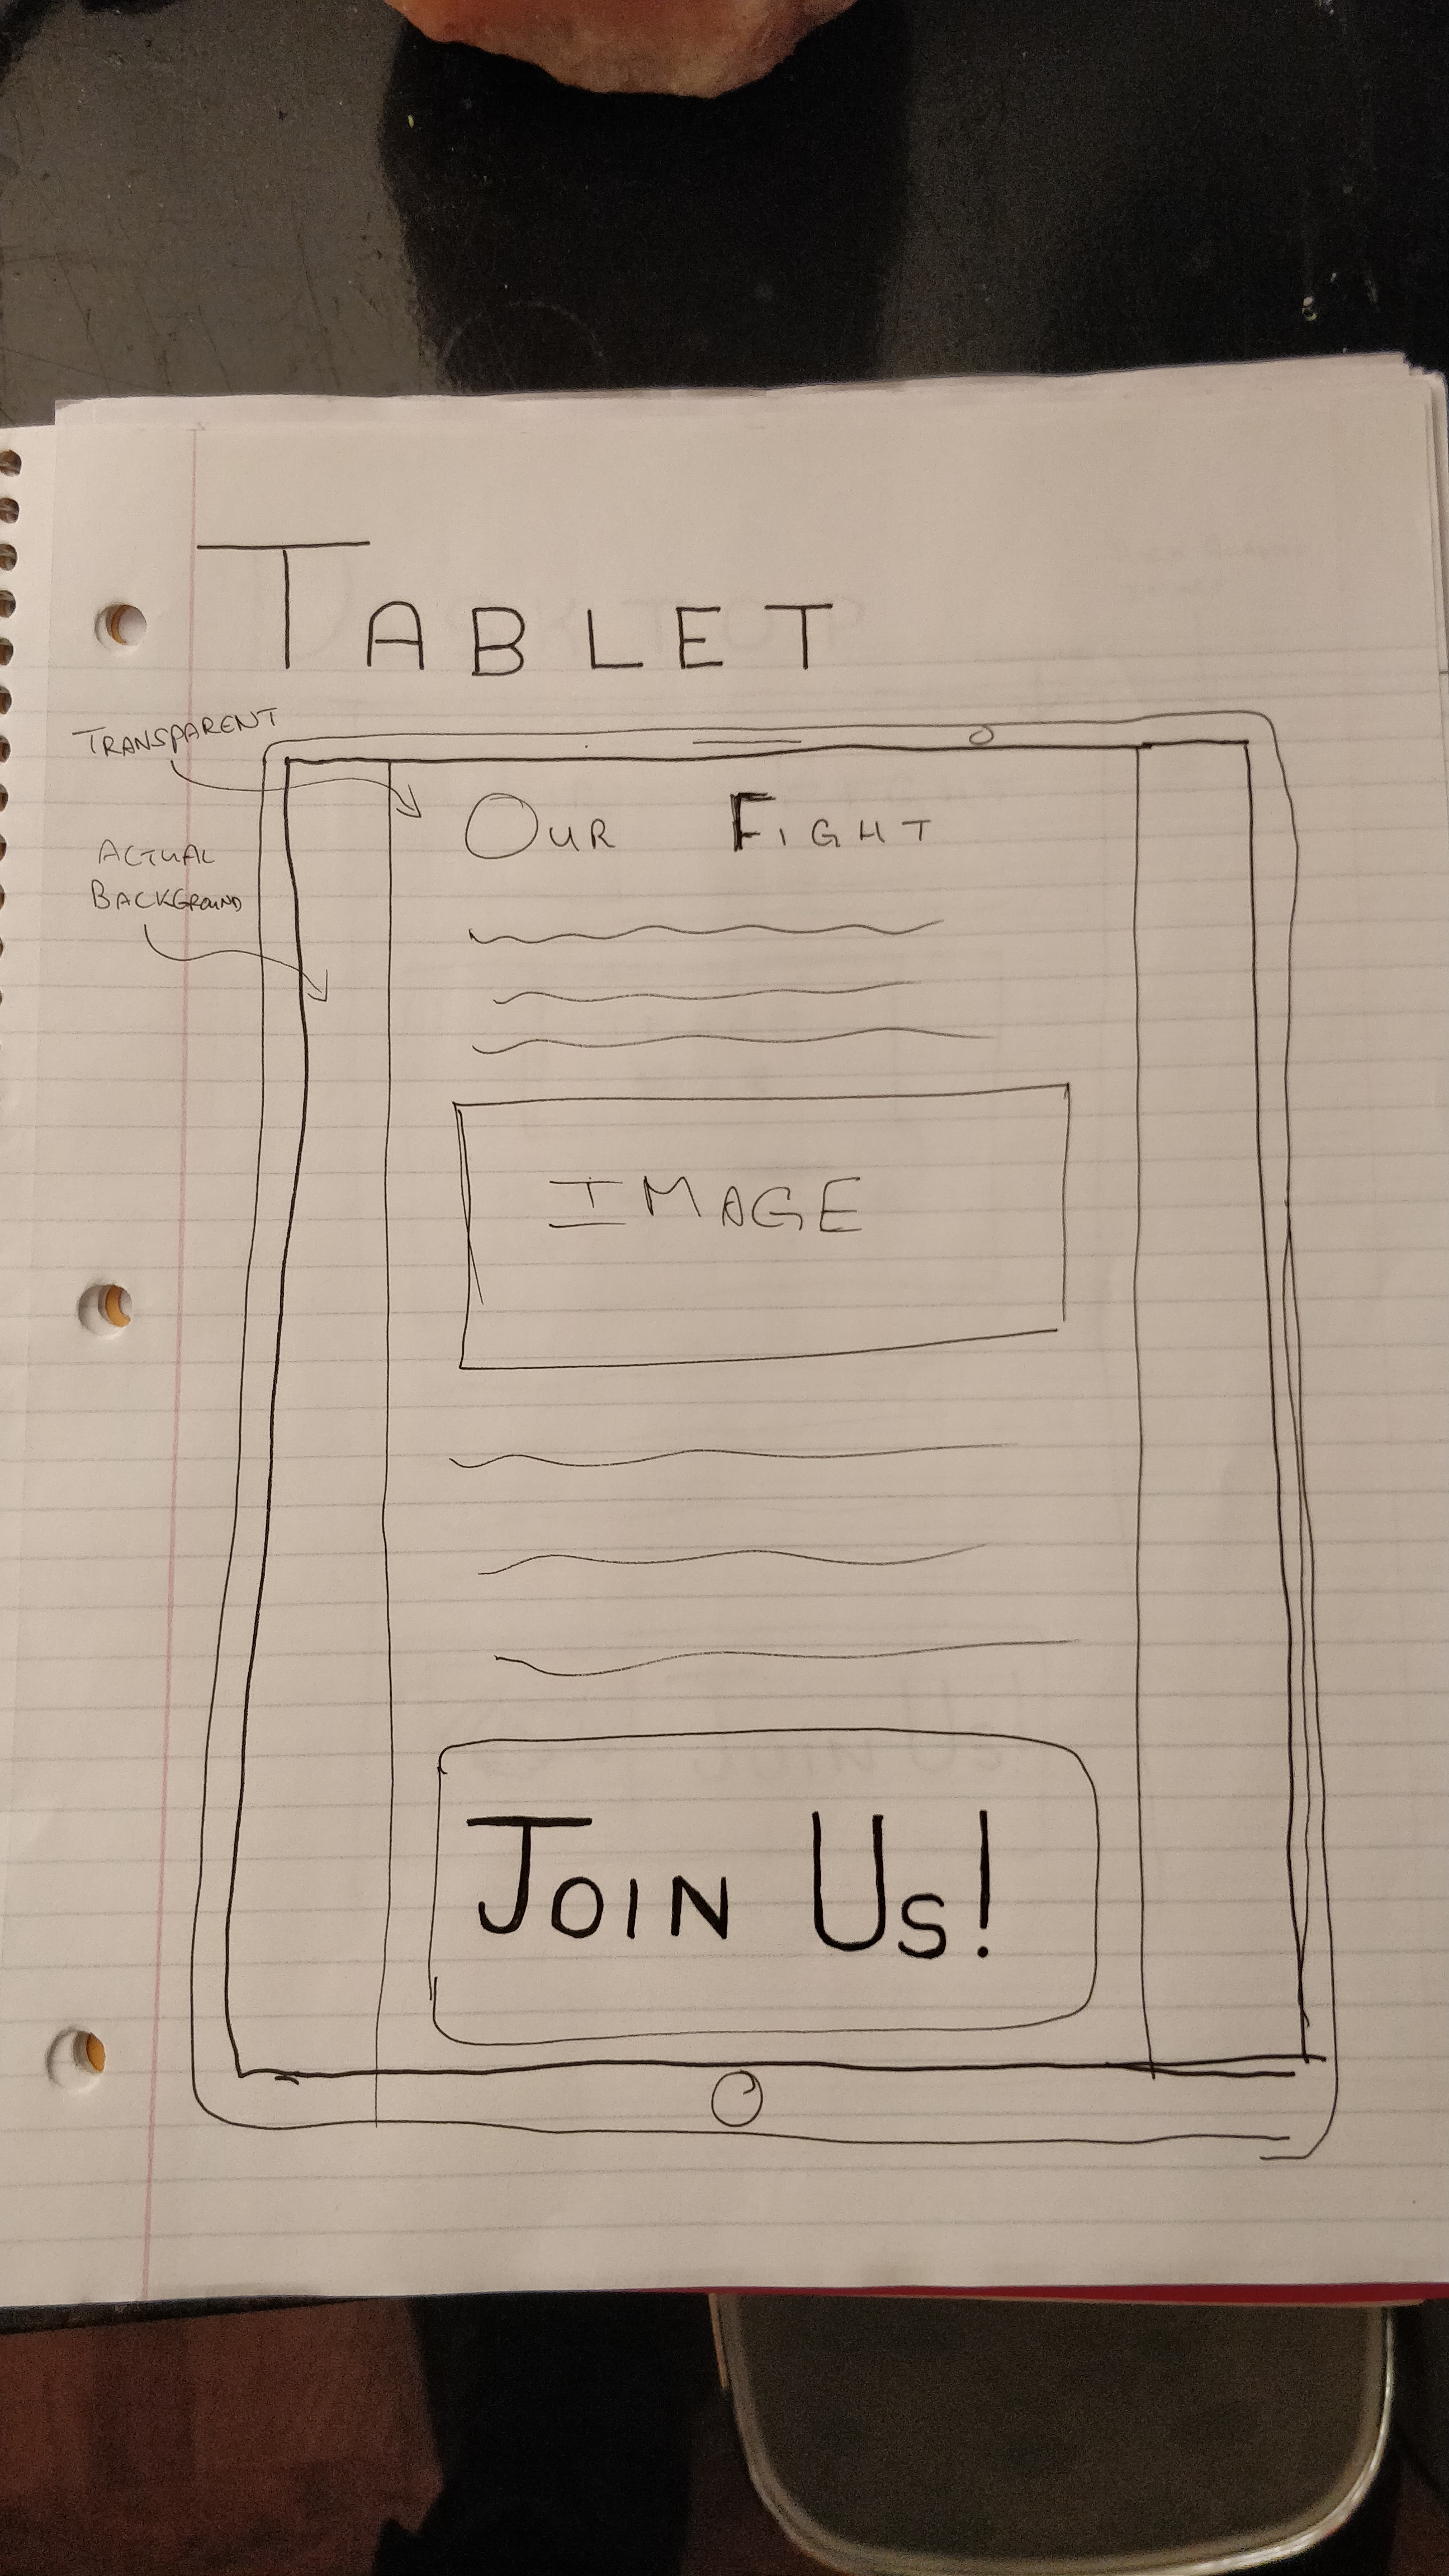 TABLET
TRANSPARENT
ACTUAL
BACKGROUND
OUR FIGHT
IMAGE
JOIN US!